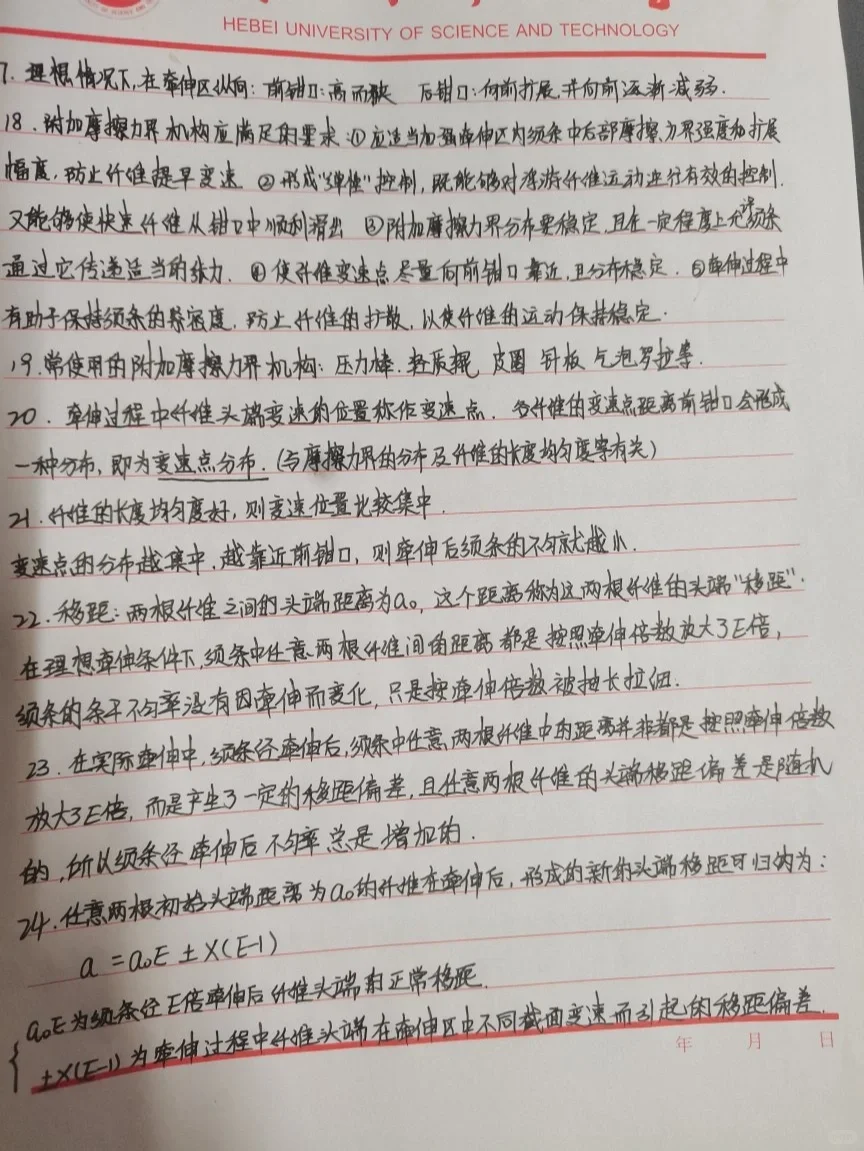 HEBEI UNIVERSITY OF SCIENCE AND TECHNOLOGY
7. 理想情况下,在牵伸区纵向: 前钳口:高而狭 后钳口:向前扩展,并向前逐渐减弱.
18. 附加摩擦力界机构应满足的要求:①应适当加强牵伸区内须条中后部摩擦力界强度和扩展
幅度,防止纤维提早变速 ②形成"弹性"控制,既能够对浮游纤维运动进行有效的控制.
又能够使快速纤维从钳口中顺利滑出 ③附加摩擦力界分布要稳定,且在一定程度上允许须条
通过它传递适当的张力. ④使纤维变速点尽量向前钳口靠近,且分布稳定. ⑤牵伸过程中
有助于保持须条的紧密度.防止纤维的扩散,以使纤维的运动保持稳定.
19. 常使用的附加摩擦力界机构: 压力棒. 轻质辊 皮圈 针板 气泡罗拉等.
20. 牵伸过程中纤维头端变速的位置称作变速点. 各纤维的变速点距离前钳口会形成
一种分布,即为变速点分布.(与摩擦力界的分布及纤维的长度均匀度等有关)
21. 纤维的长度均匀度好,则变速位置比较集中.
变速点的分布越集中,越靠近前钳口,则牵伸后须条的不匀就越小.
22. 移距: 两根纤维之间的头端距离为a₀, 这个距离称为这两根纤维的头端"移距".
在理想牵伸条件下,须条中任意两根纤维间的距离都是按照牵伸倍数放大了E倍,
须条的条干不匀率没有因牵伸而变化,只是按牵伸倍数被抽长拉细.
23. 在实际牵伸中,须条经牵伸后,须条中任意两根纤维中的距离并非都是按照牵伸倍数
放大了E倍,而是产生了一定的移距偏差,且任意两根纤维的头端移距偏差是随机
的,所以须条经牵伸后不匀率总是增加的.
24. 任意两根初始头端距离为a₀的纤维在牵伸后,形成的新的头端移距可归纳为:
a = a₀E ± X(E-1)
a₀E为须条经E倍牵伸后纤维头端的正常移距.
±X(E-1)为牵伸过程中纤维头端在牵伸区中不同截面变速而引起的移距偏差.
年 月 日